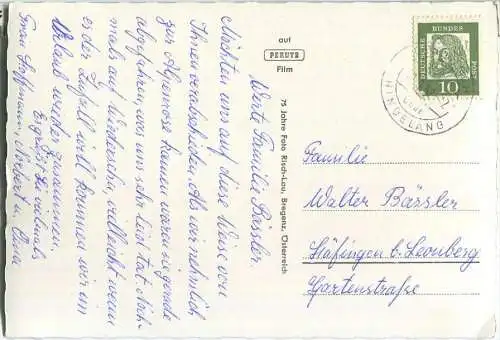 Werte Familie Bässler
Möchten uns auf diese Weise von
Ihnen verabschieden. Als wir nehmlich
zur Alpenrose kamen waren sie gerade
abgefahren, das uns sehr leid tat. Noch-
mals auf Wiedersehn, vielleicht wenn
es der Zufall will kommen wir im
Urlaub wieder zusammen.
Es grüßt Sie vielmals
Frau Hoffmann, Norbert u.
auf
PERUTZ
Film
75 Jahre Foto Risch-Lau, Bregenz, Österreich
DEUTSCHE BUNDESPOST
10
HINDELANG
Familie
Walter Bässler
Höfingen b. Leonberg
Gartenstraße